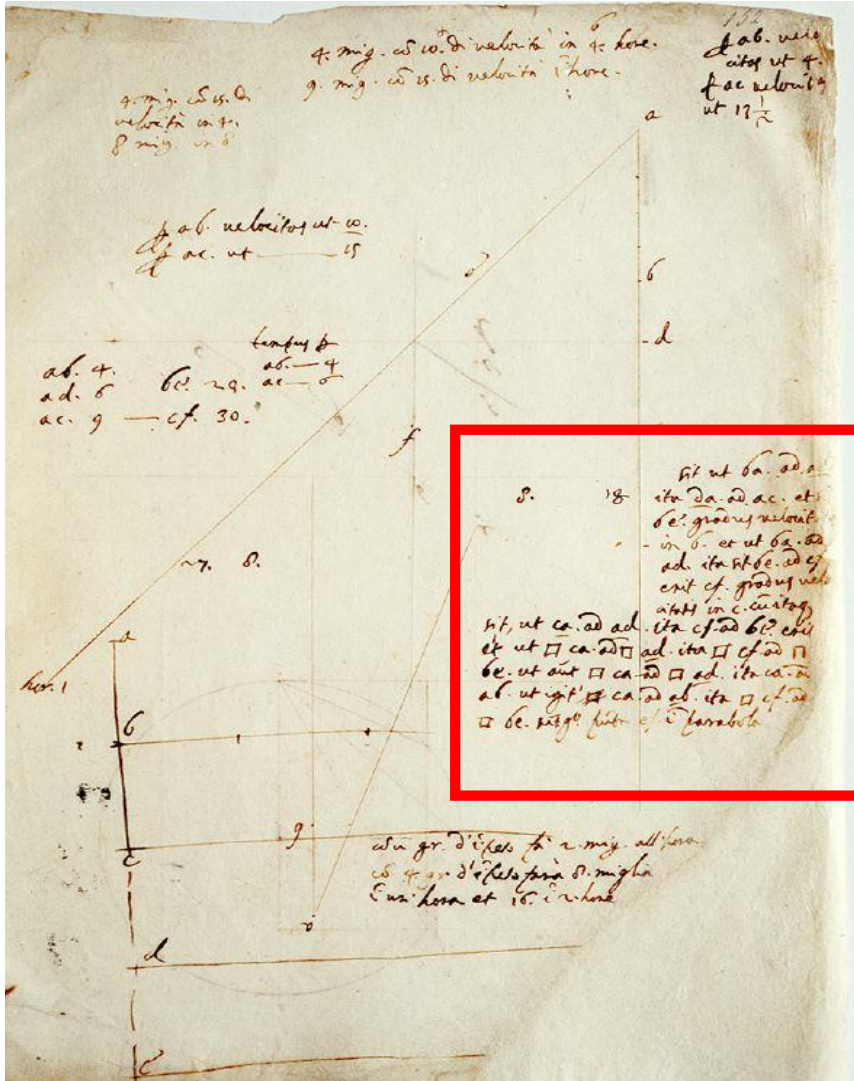 152
4. mig. cō 10. di velocità in 4. hore.
9. mig. cō 15. di velocità ī hore.
p ab. velo
citas ut 4.
p ac velocitas
ut 13 1/2
4. mig. cō 15. di
velocità in 4.
8 mig. in 8
a
p ab. velocitas ut 10.
p ac. ut — 15
b
d
ab. 4.
ad. 6 be. 20.
ac. 9 — cf. 30.
tempus p
ab. — 4
ac — 6
f
8. 18
sit ut ba. ad. a
ita da. ad. ac. et
be. gradus velocit
in b. et ut ba. ad
ad. ita sit be. ad cf
erit cf. gradus velo
citatis in c. cū itaq
sit, ut ca. ad ad. ita cf. ad be. erit
et ut □ ca. ad □ ad. ita □ cf. ad □
be. ut aūt □ ca. ad □ ad. ita ca. a
ab. ut igit' ca. ad ab. ita □ cf. ad
□ be. puncta ī parabola
8.
a
hor. 1
b
c
g
cō gr. d'īpeto fa 2. mig. all'hora
cō 4 gr. d'īpeto farà 8. miglia
ī un' hora et 16. ī 2. hore
d